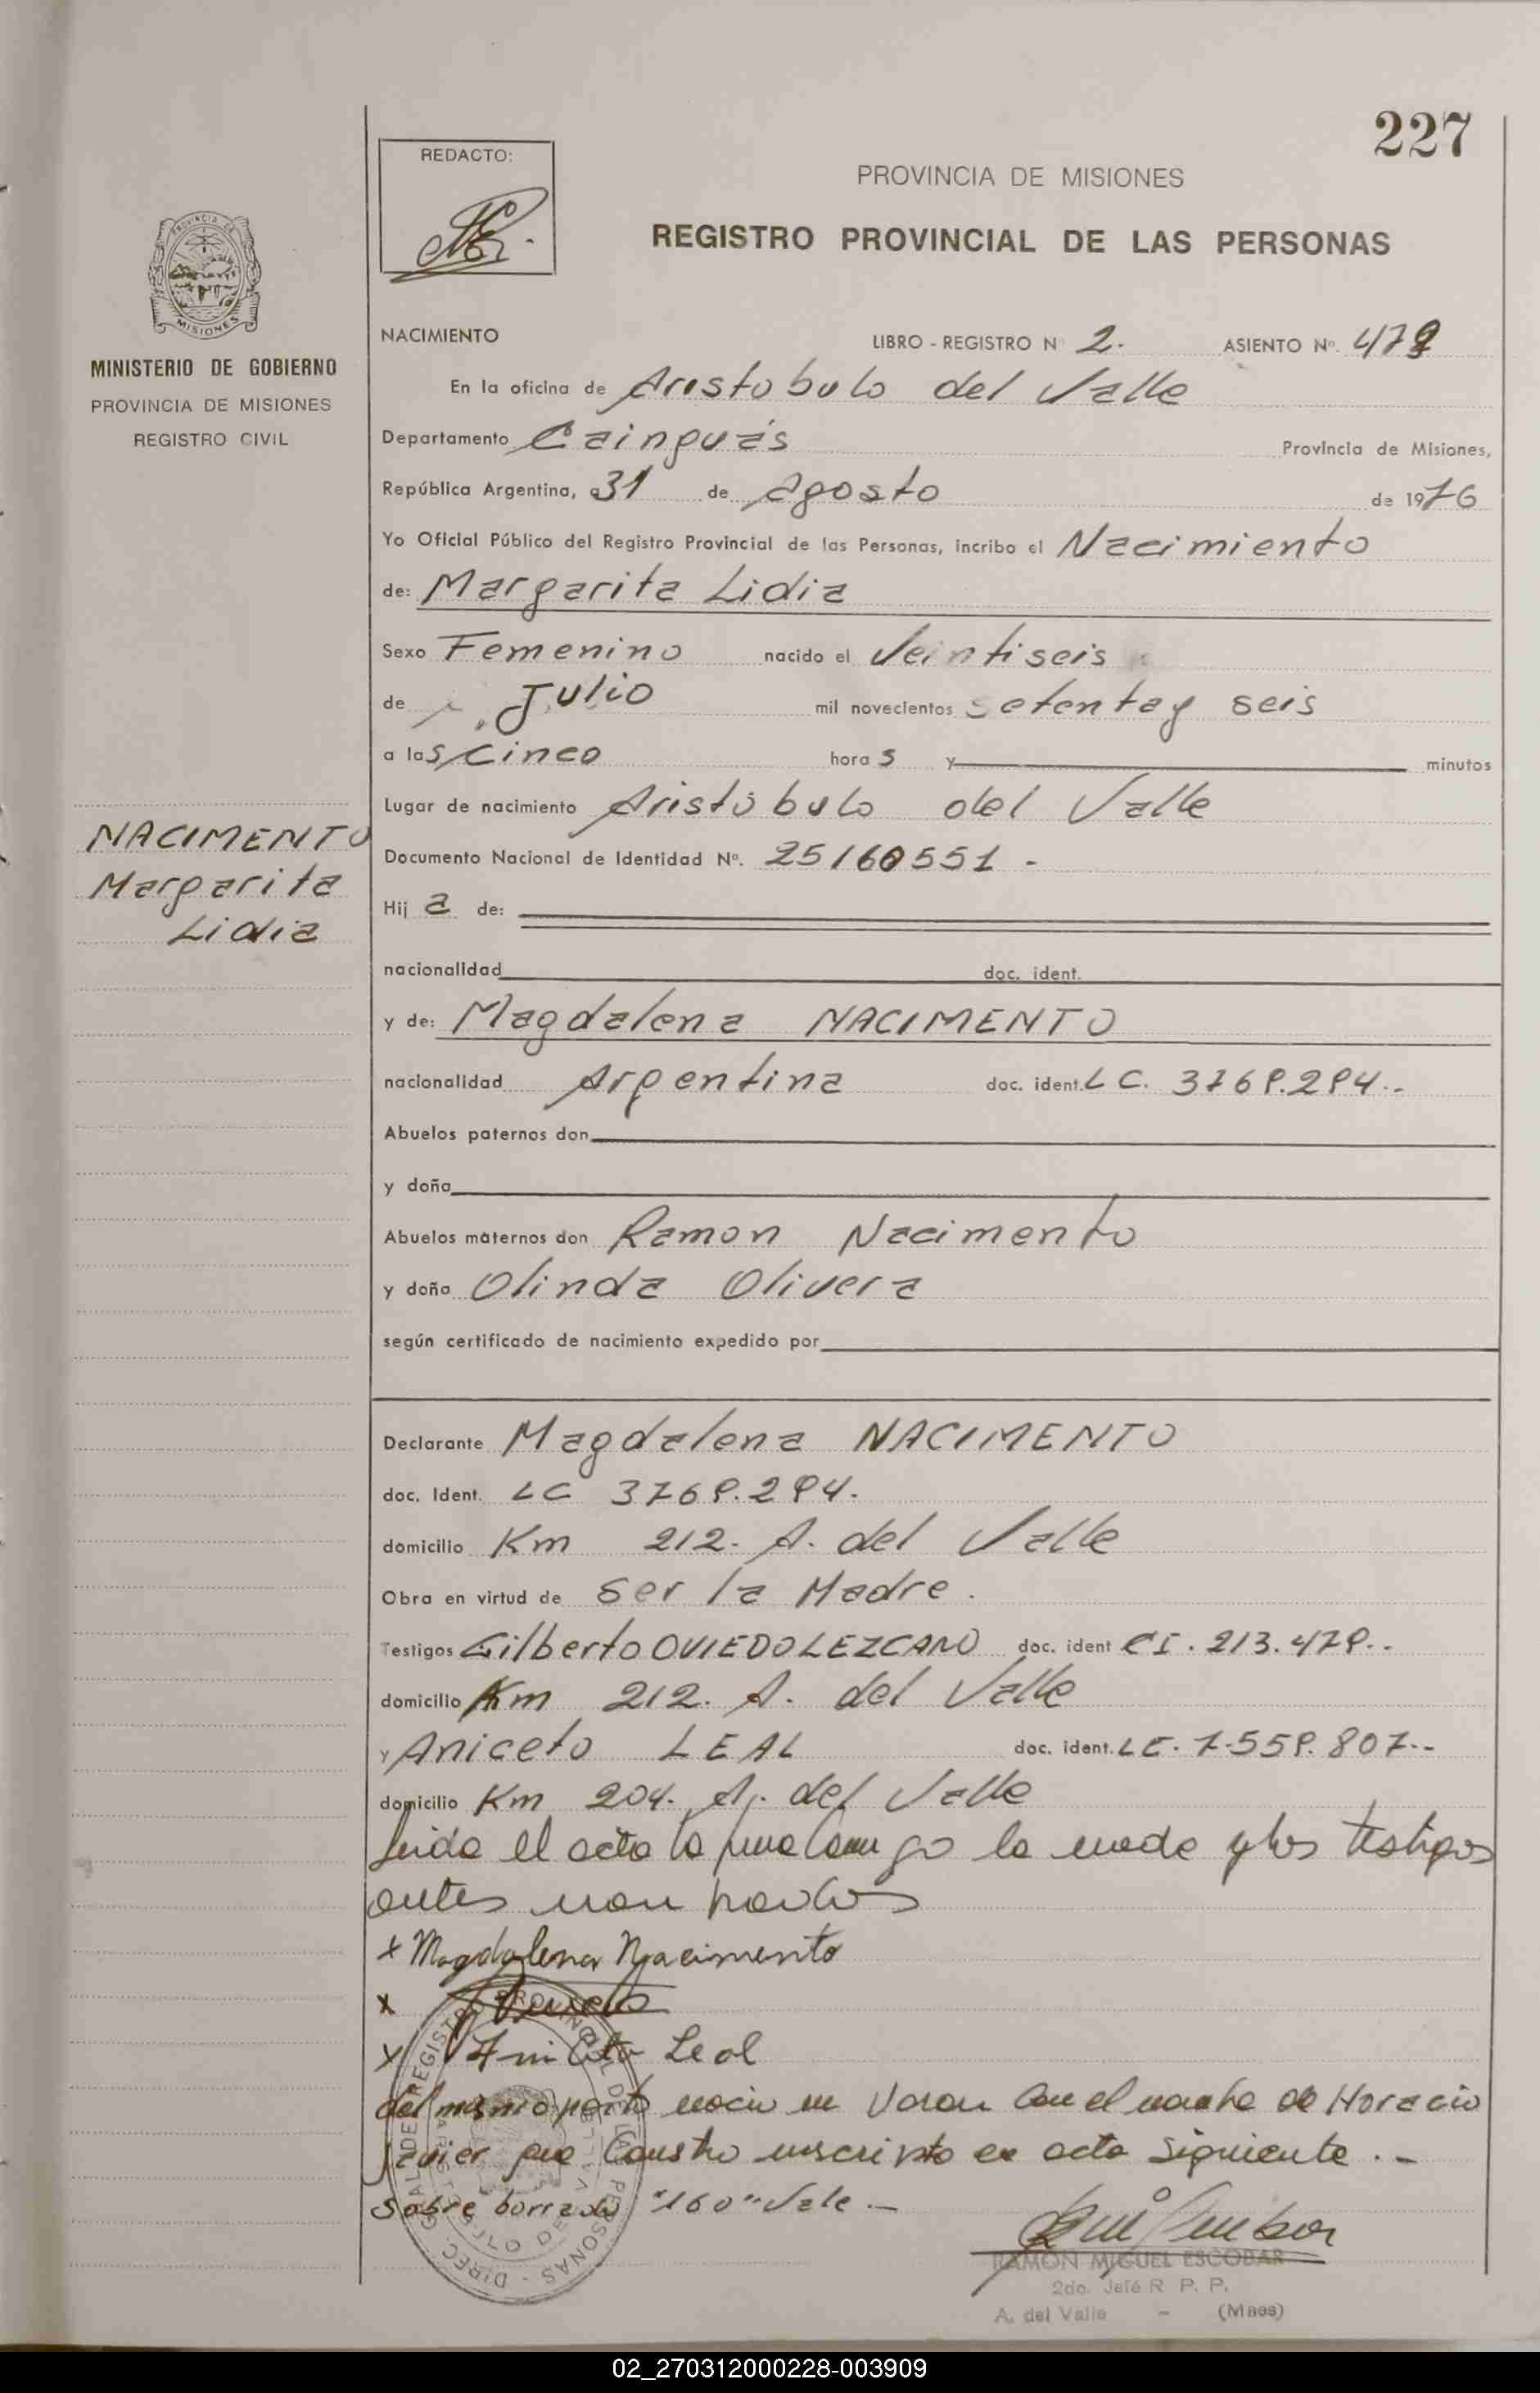 227
REDACTO:
PROVINCIA DE MISIONES
REGISTRO PROVINCIAL DE LAS PERSONAS
MISIONES
MINISTERIO DE GOBIERNO
PROVINCIA DE MISIONES
REGISTRO CIVIL
NACIMIENTO LIBRO - REGISTRO N 2. ASIENTO Nº.
En la oficina de Aristobulo del Valle
Departamento Cainguás Provincia de Misiones,
República Argentina, a 31 de Agosto de 1976
Yo Oficial Público del Registro Provincial de las Personas, incribo el Nacimiento
de: Margarita Lidia
Sexo Femenino nacido el Veintiseis
de Julio mil novecientos setenta y seis
a las Cinco horas y minutos
Lugar de nacimiento Aristóbulo del Valle
NACIMENTO
Margarita
Lidia
Documento Nacional de Identidad Nº. 25160551 -
Hija de:
nacionalidad doc. ident.
y de: Magdalena NACIMENTO
nacionalidad Argentina doc. ident. LC.
Abuelos paternos don
y doña
Abuelos maternos don Ramon Nacimento
y doña Olinda Olivera
según certificado de nacimiento expedido por
Declarante Magdalena NACIMENTO
doc. Ident. LC
domicilio Km 212. A. del Valle
Obra en virtud de ser la Madre.
Testigos Gilberto OVIEDO LEZCANO doc. ident CI.
domicilio Km 212. A. del Valle
y Aniceto LEAL doc. ident. LE.
domicilio Km 204. A. del Valle
leida el acta la firma conmigo la madre y los testigos
antes nombrados
x Magdalena Nacimento
x
x Aniceto Leal
del mismo parto nacio un Varon con el nombre de Horacio
Javier que consta inscripto en acta siguiente . -
Sobre borrado "160" Vale . -
RAMON MIGUEL ESCOBAR
2do. Jefe R. P. P.
A. del Valle - (Mnes)
02_270312000228-003909